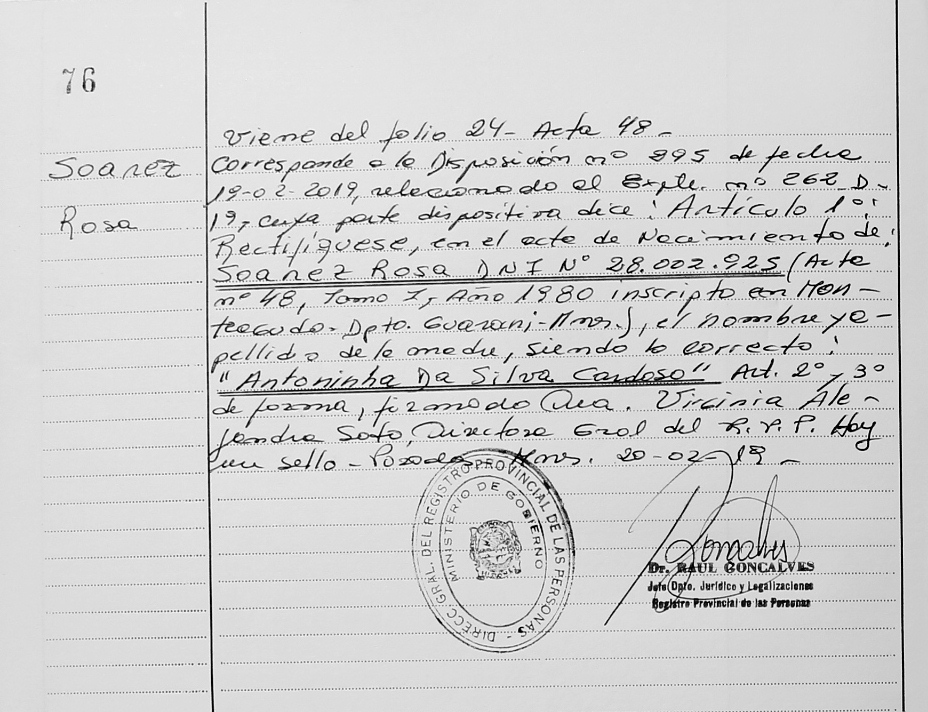 76
Viene del folio 24 - Acta 48 -
Soarez
Corresponde a la Disposición nº 995 de fecha
19-02-2019, relacionado al Expte. nº 262 D-
Rosa
19, cuya parte dispositiva dice: Artículo 1º:
Rectifíquese, en el acta de Nacimiento de:
Soarez Rosa DNI Nº 28.002.925 (Acta
nº 48, Tomo I, Año 1980 inscripto en Mon-
teagudo - Dpto. Guaraní - Mnes.), el nombre y a-
pellido de la madre, siendo lo correcto:
"Antoninha Da Silva Cardoso" Art. 2º y 3º
de forma, firmado Dra. Virginia Ale-
jandra Soto, Directora Gral del R.P.P. Hay
un sello - Posadas Mnes. 20-02-19 -
DIRECC. GRAL. DEL REGISTRO PROVINCIAL DE LAS PERSONAS -
MINISTERIO DE GOBIERNO
Goncalves
Dr. RAUL GONCALVES
Jefe Dpto. Jurídico y Legalizaciones
Registro Provincial de las Personas